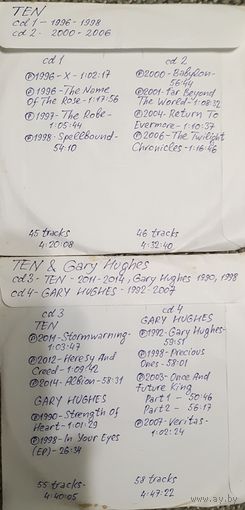 TEN
cd 1 - 1996-1998
cd 2 - 2000-2006
cd 1
℗1996-X-1:02:17
℗1996-The Name
Of The Rose-1:17:56
℗1997-The Robe-
1:05:44
℗1998-Spellbound-
54:10
45 tracks
4:20:08
cd 2
℗2000-Babylon-
56:44
℗2001-Far Beyond
The World-1:08:32
℗2004-Return To
Evermore-1:10:37
℗2006-The Twilight
Chronicles-1:16:46
46 tracks
4:32:40
TEN & Gary Hughes
cd 3 - TEN - 2011-2014, Gary Hughes 1990, 1998
cd 4 - GARY HUGHES - 1992-2007
cd 3
TEN
℗2011-Stormwarning-
1:03:47
℗2012-Heresy And
Creed-1:09:42
℗2014-Albion-58:31
GARY HUGHES
℗1990-Strength Of
Heart-1:01:29
℗1998-In Your Eyes
(EP)-26:34
55 tracks
4:40:05
cd 4
GARY HUGHES
℗1992-Gary Hughes-
59:51
℗1998-Precious
Ones-58:01
℗2003-Once And
Future King
Part 1 - 50:46
Part 2 - 56:17
℗2007-Veritas-
1:02:24
58 tracks
4:47:22
www.ay.by